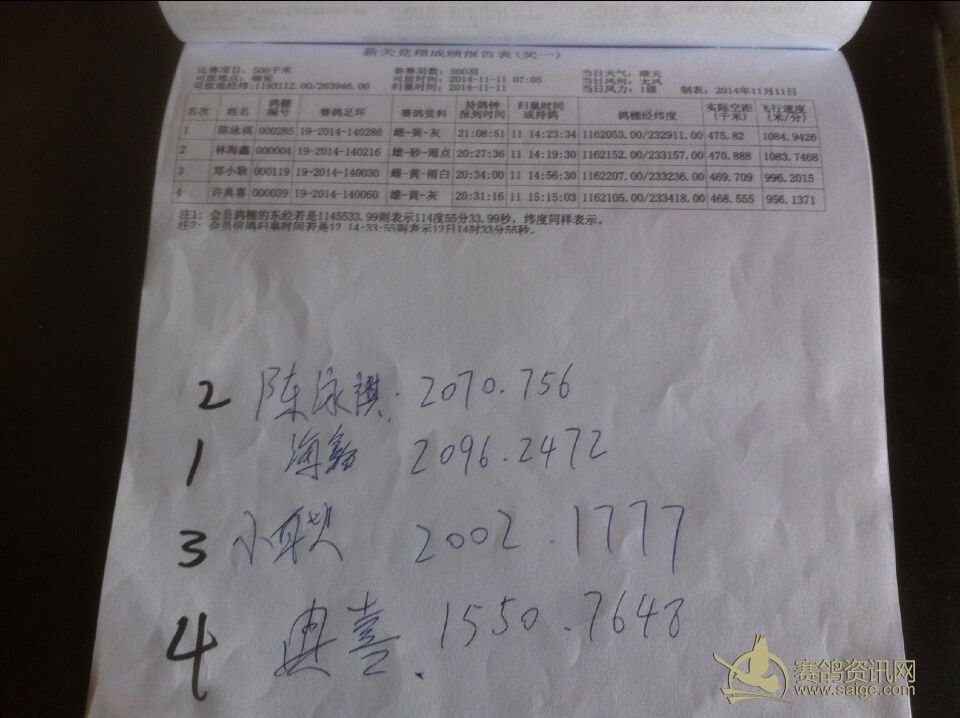 新天竞翔成绩报告表(奖一)
比赛项目: 500千米 参赛羽数: 500羽 当日天气: 晴天
司放地点: 司放时间: 2014-11-11 07:05 当日风向:
司放地经纬:1193112.00/263946.00 归巢时间: 2014-11-11 当日风力: 1级 制表: 2014年11月11日
名次 姓名 鸽棚编号 赛鸽足环 赛鸽资料 持鸽钟报到时间 归巢时间或持鸽 鸽棚经纬度 实际空距(千米) 飞行速度(米/分)
1 陈泳祺 000285 19-2014-140286 雌-黄-灰 21:08:51 11 14:23:34 1162053.00/232911.00 475.82 1084.9426
2 林海鑫 000004 19-2014-140216 雄-砂-雨点 20:27:36 11 14:19:30 1162152.00/233157.00 470.888 1083.7468
3 郑小歌 000119 19-2014-140030 雌-黄-雨白 20:34:00 11 14:56:30 1162207.00/233236.00 469.709 996.2015
4 许典喜 000039 19-2014-140060 雌-黄-灰 20:31:16 11 15:15:03 1162105.00/233418.00 468.555 956.1371
注1: 会员鸽棚的东经若是1145533.99则表示114度55分33.99秒，纬度同样表示。
注2: 会员信鸽归巢时间若是12 14:33:55则表示12日14时33分55秒。
2 陈泳祺. 2070.756
1 海鑫 2096.2472
3 小 2002.1777
4 典喜. 1550.7648
赛鸽资讯网
www.saigc.com